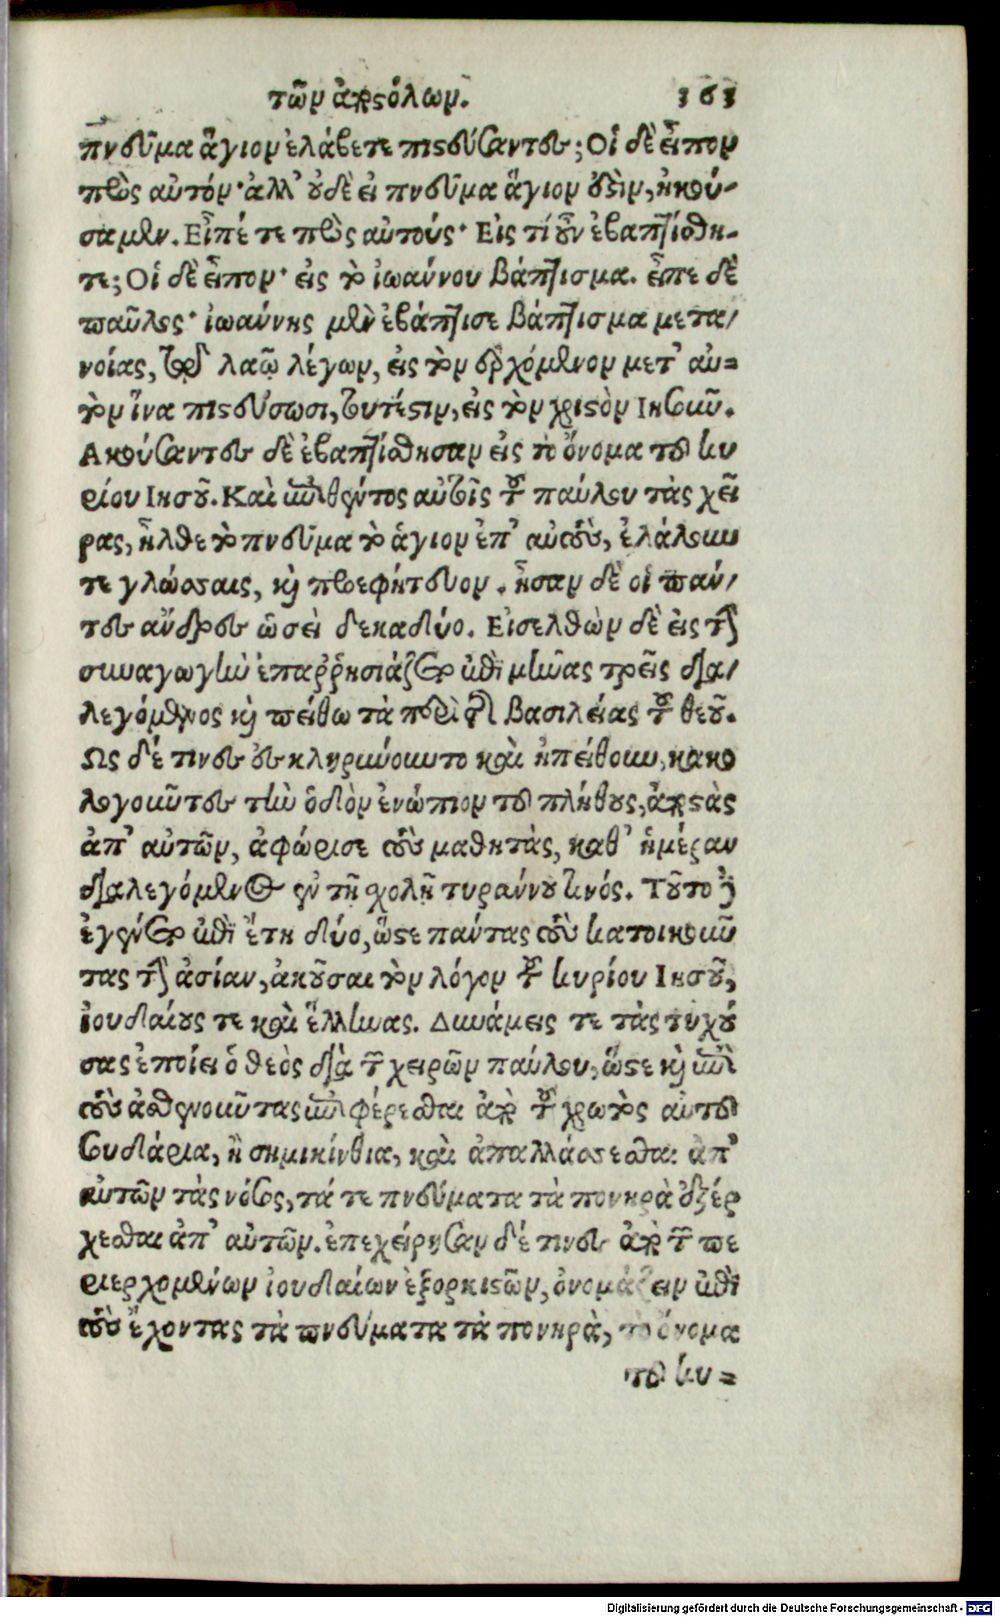 τῶν ἀποστόλων. 161
πνεῦμα ἅγιον ἐλάβετε πιστεύσαντες; Οἱ δὲ εἶπον
πρὸς αὐτόν· ἀλλ' οὐδὲ εἰ πνεῦμα ἅγιον ὅστιν, ἠκού-
σαμεν. Εἶπέ τε πρὸς αὐτούς· Εἰς τί οὖν ἐβαπτίσθη-
τε; Οἱ δὲ εἶπον· εἰς τὸ ἰωάννου βάπτισμα. εἶπε δὲ
παῦλος· ἰωάννης μὲν ἐβάπτισε βάπτισμα μετα/
νοίας, τῷ λαῷ λέγων, εἰς τὸν ἐρχόμενον μετ' αὐ=
τὸν ἵνα πιστεύσωσι, τουτέστιν, εἰς τὸν χριστὸν Ιησοῦν.
Ακούσαντες δὲ ἐβαπτίσθησαν εἰς τὸ ὄνομα τοῦ κυ
ρίου Ιησοῦ. Καὶ ἐπιθέντος αὐτοῖς τοῦ παύλου τὰς χεῖ
ρας, ἦλθε τὸ πνεῦμα τὸ ἅγιον ἐπ' αὐτοὺς, ἐλάλουν
τε γλώσσαις, καὶ προεφήτευον. ἦσαν δὲ οἱ πάν/
τες ἄνδρες ὡσεὶ δεκαδύο. Εἰσελθὼν δὲ εἰς τὴν
συναγωγὴν ἐπαῤῥησιάζετο ἐπὶ μῆνας τρεῖς δια/
λεγόμενος καὶ πείθω τὰ περὶ τῆς βασιλείας τοῦ θεοῦ.
Ως δέ τινες ἐσκληρύνοντο καὶ ἠπείθουν, κακο
λογοῦντες τὴν ὁδὸν ἐνώπιον τοῦ πλήθους, ἀποστὰς
ἀπ' αὐτῶν, ἀφώρισε τοὺς μαθητὰς, καθ' ἡμέραν
διαλεγόμενος ἐν τῇ σχολῇ τυράννου τινός. Τοῦτο δὲ
ἐγένετο ἐπὶ ἔτη δύο, ὥστε παντας τοὺς κατοικοῦν
τας τὴν ἀσίαν, ἀκοῦσαι τὸν λόγον τοῦ κυρίου Ιησοῦ,
ἰουδαίους τε καὶ ἕλληνας. Δυνάμεις τε τὰς τυχού
σας ἐποίει ὁ θεὸς διὰ τῶν χειρῶν παύλου, ὥστε καὶ ἐπὶ
τοὺς ἀσθενοῦντας ἐπιφέρεσθαι ἀπὸ τοῦ χρωτὸς αὐτοῦ
σουδάρια, ἢ σημικίνθια, καὶ ἀπαλλάσσεσθαι ἀπ'
αὐτῶν τὰς νόσους, τά τε πνεύματα τὰ πονηρὰ ἐξέρ
χεσθαι ἀπ' αὐτῶν. ἐπεχείρησαν δέ τινες ἀπὸ τῶν πε
ριερχομένων ἰουδαίων ἐξορκιστῶν, ὀνομάζειν ἐπὶ
τοὺς ἔχοντας τὰ πνεύματα τὰ πονηρὰ, τὸ ὄνομα
τοῦ κυ=
Digitalisierung gefördert durch die Deutsche Forschungsgemeinschaft - DFG